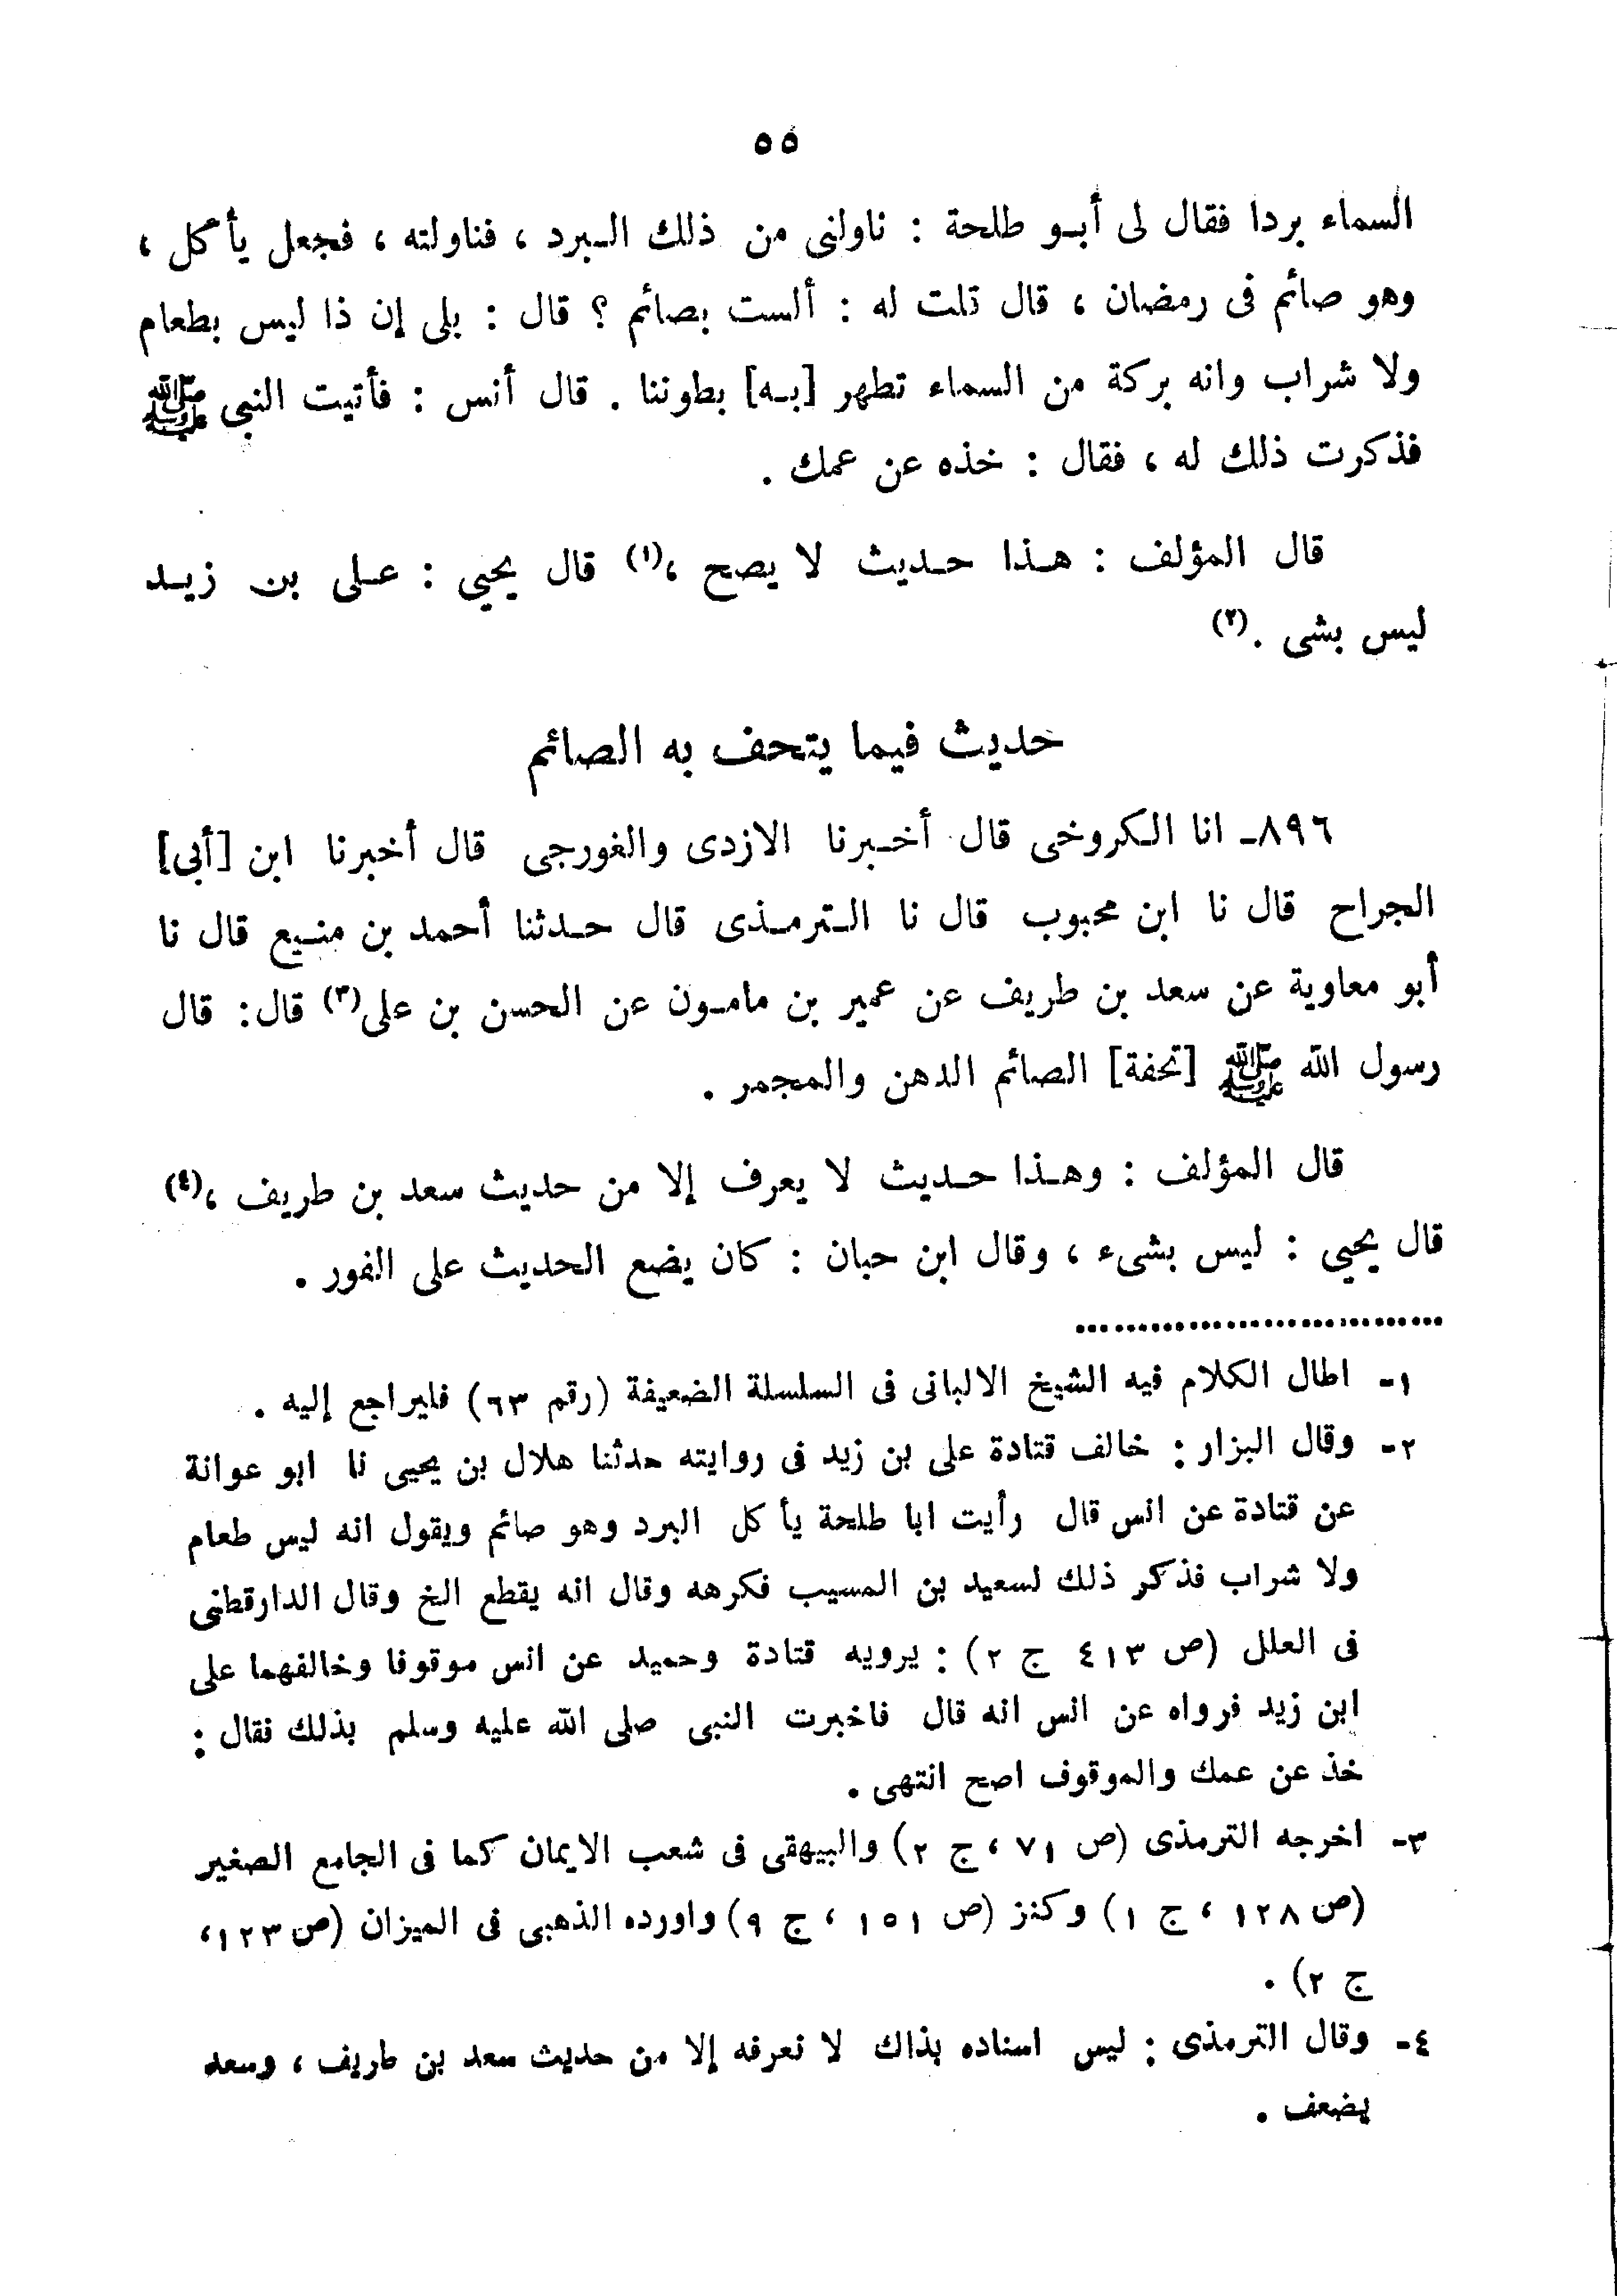 ٥٥
السماء بردا فقال لى أبو طلحة : ناولنى من ذلك البرد ، فناولته ، فجعل يأكل ،
وهو صائم فى رمضان ، قال قلت له : ألست بصائم ؟ قال : بلى إن ذا ليس بطعام
ولا شراب وانه بركة من السماء تطهر [به] بطوننا . قال أنس : فأتيت النبى ﷺ
فذكرت ذلك له ، فقال : خذه عن عمك .
قال المؤلف : هذا حديث لا يصح ،(١) قال يحيى : على بن زيد
ليس بشى .(٢)
حديث فيما يتحف به الصائم
٨٩٦- انا الكروخى قال أخبرنا الازدى والغورجى قال أخبرنا ابن [أبى]
الجراح قال نا ابن محبوب قال نا الترمذى قال حدثنا أحمد بن منيع قال نا
أبو معاوية عن سعد بن طريف عن عمير بن مامون عن الحسن بن على(٣) قال: قال
رسول الله ﷺ [تحفة] الصائم الدهن والمجمر .
قال المؤلف : وهذا حديث لا يعرف إلا من حديث سعد بن طريف ،(٤)
قال يحيى : ليس بشىء ، وقال ابن حبان : كان يضع الحديث على الفور .
..............................
١- اطال الكلام فيه الشيخ الالبانى فى السلسلة الضعيفة (رقم ٦٣) فليراجع إليه .
٢- وقال البزار : خالف قتادة على بن زيد فى روايته حدثنا هلال بن يحيى نا ابو عوانة
عن قتادة عن انس قال رأيت ابا طلحة يأكل البرد وهو صائم ويقول انه ليس طعام
ولا شراب فذكر ذلك لسعيد بن المسيب فكرهه وقال انه يقطع الخ وقال الدارقطنى
فى العلل (ص ٤١٣ ج ٢) : يرويه قتادة وحميد عن انس موقوفا وخالفهما على
ابن زيد فرواه عن انس انه قال فاخبرت النبى صلى الله عليه وسلم بذلك فقال :
خذ عن عمك والموقوف اصح انتهى .
٣- اخرجه الترمذى (ص ٧١ ، ج ٢) والبيهقى فى شعب الايمان كما فى الجامع الصغير
(ص ١٢٨ ، ج ١) وكنز (ص ١٥١ ، ج ٩) واورده الذهبى فى الميزان (ص ١٢٣ ،
ج ٢) .
٤- وقال الترمذى : ليس اسناده بذاك لا نعرفه إلا من حديث سعد بن طريف ، وسعد
يضعف .